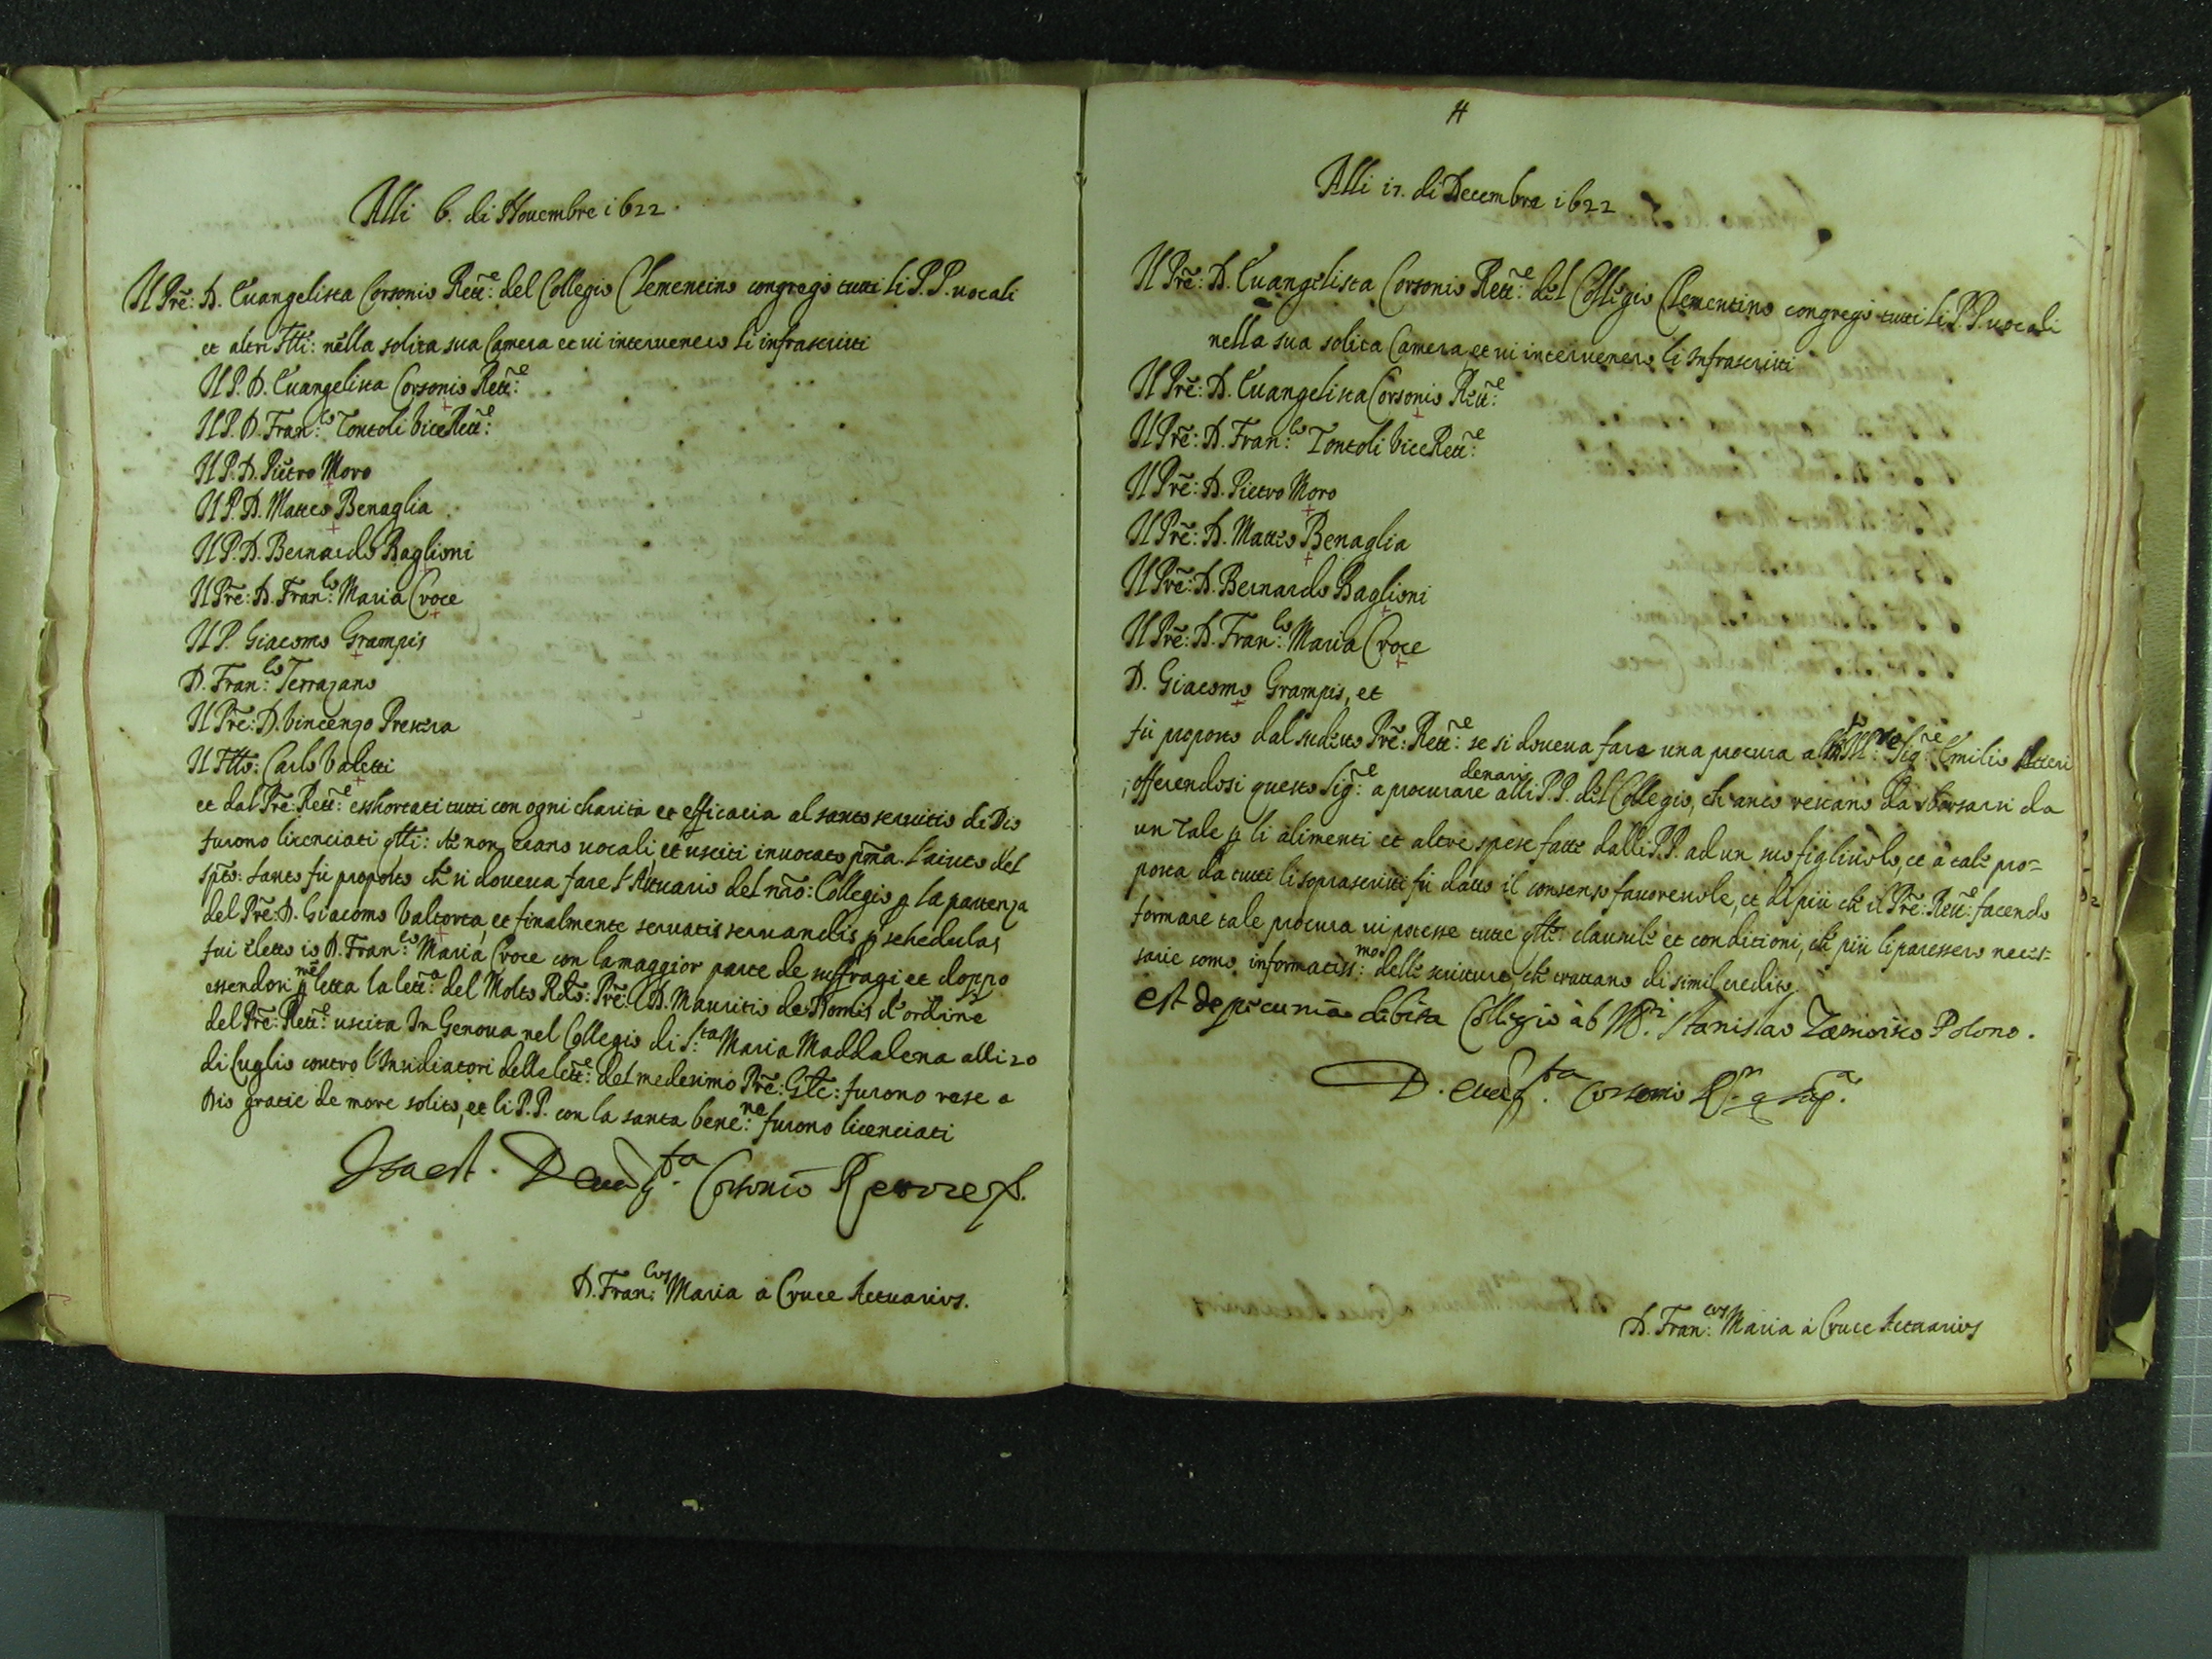 Alli 6. di Nouembre 1622.
Il Prẽ: D. Euangelista Corsonio Rett:e del Collegio Clementino congregò tutti li P.P. uocali
et altri Ftti: nella solita sua Camera et ui interuenero li infrascritti
Il P. D. Euangelista Corsonio Rett:e
Il P. D. Fran:co Tontoli ViceRett:e
Il P. D. Pietro Moro
Il P. D. Matteo Benaglia
Il P. D. Bernardo Baglioni
Il Prẽ: D. Fran:co Maria Croce
Il P. Giacomo Grampis
D. Fran:co Terrazano
Il Prẽ: D. Vincenzo Prescia
Il Ftto: Carlo Valetti
et dal Prẽ: Rett:e esshortati tutti con ogni charità et efficacia al santo seruitio di Dio
furono licenciati qlli: ch̃ non erano uocali, et usciti inuocato pm̃a. l'aiuto del
Spto: santo fù proposto ch̃ si doueua fare l'Attuario del nro: Collegio p la partenza
del Prẽ: D. Giacomo Valtorta, et finalmente seruatis seruandis p schedulas
fui eletto io D. Fran:co Maria Croce con la maggior parte de suffragi et doppo
essendosi pmẽ letta la lett:a del Molto Rdo: Prẽ: D. Mauritio de Homis d'ordine
del Prẽ: Rett:e uscita In Genoua nel Collegio di S:ta Maria Maddalena alli 20
di Luglio contro l'Insidiatori delle lett:e del medesimo Prẽ: Gñle: furono rese a
Dio gratie de more solito, et li P.P. con la santa bene:ne furono licenciati
Ita est. D. Euãg:ta Corsonio Rettore pp.
D. Fran:cus Maria à Cruce Actuarius.
4
Alli 17. di Decembre 1622
Il Prẽ: D. Euangelista Corsonio Rett:e del Collegio Clementino congregò tutti li P.P. uocali
nella sua solita Camera, et ui interuenero li Infrascritti
Il Prẽ: D. Euangelista Corsonio Rett:e
Il Prẽ: D. Fran:co Tontoli ViceRett:e
Il Prẽ: D. Pietro Moro
Il Prẽ: D. Matteo Benaglia
Il Prẽ: D. Bernardo Baglioni
Il Prẽ: D. Fran:co Maria Croce
D. Giacomo Grampis, et
fù proposto dal sudetto Prẽ: Rett:e se si doueua fare una procura al Sig:re Emilio Altieri
; offerendosi questo Sig:e a procurare denari alli P.P. del Collegio, ch̃ anco restano da sborsarsi da
un Tale p li alimenti et altre spese fatte dalli P.P. ad un suo figliuolo, et à tale pro=
posta da tutti li soprascritti fù datto il consenso fauoreuole, et di più ch̃ il Prẽ: Rett:e facendo
formare tale procura ui potesse tutte qlle: clausule et conditioni, ch̃ più li paressero neces=
sarie como informatiss:mo delle scritture, ch̃ trattano di simil credito.
est de pecunia debita Collegio ab Stanislao Zamoisco Polono.
D. Euãg:ta Corsonio
D. Fran:cus Maria à Cruce Actuarius